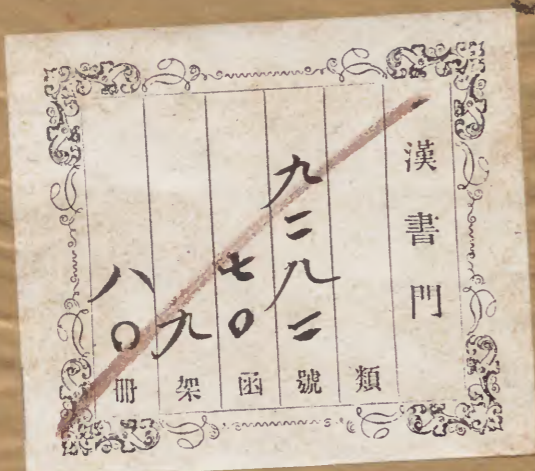 漢書門
類
九二八二號
七〇函
九架
八〇冊